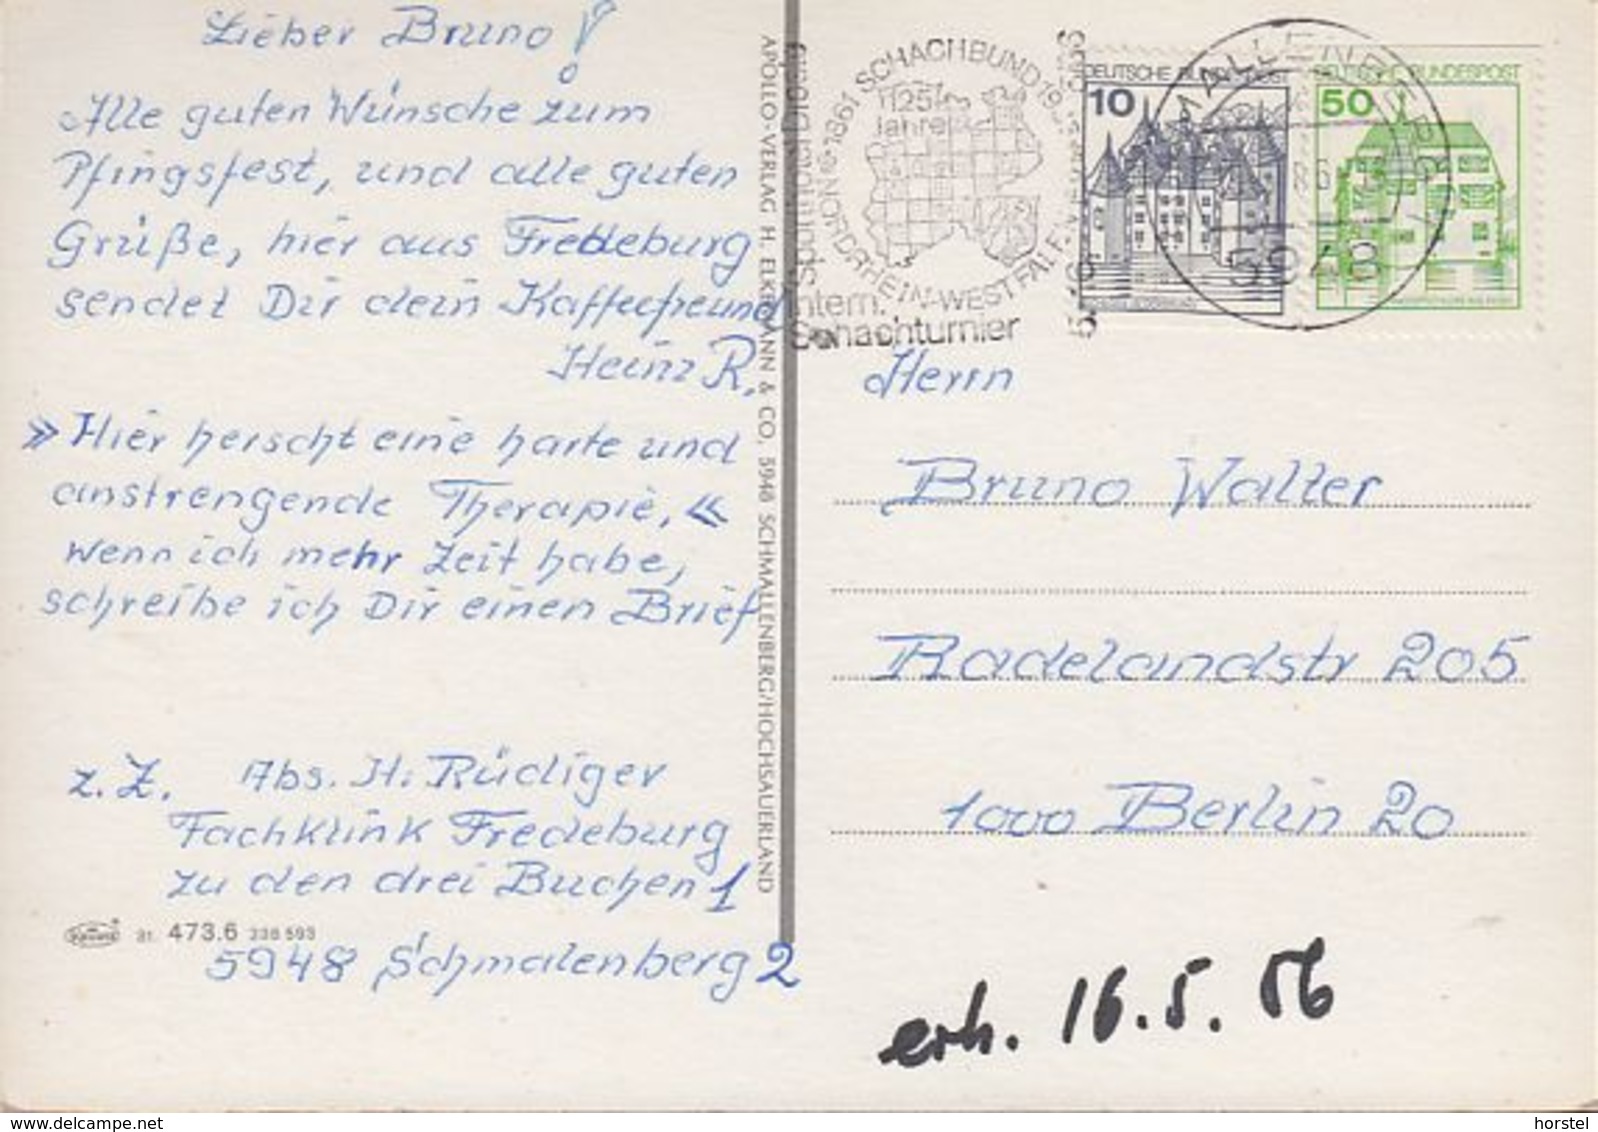 Lieber Bruno!
Alle guten Wünsche zum
Pfingsfest, und alle guten
Grüße, hier aus Fredeburg
sendet Dir dein Kaffeefreund
Heinz R.
»Hier herscht eine harte und
anstrengende Therapie, «
wenn ich mehr Zeit habe,
schreibe ich Dir einen Brief
z. Z. Abs. H. Rüdiger
Fachklink Fredeburg
zu den drei Buchen 1
5948 Schmalenberg 2
473.6
APOLLO-VERLAG H. & CO, 5948 SCHMALLENBERG/HOCHSAUERLAND
1861 SCHACHBUND
125
Jahre
NORDRHEIN-WESTFALEN
Intern.
Schachturnier
DEUTSCHE BUNDESPOST
10
DEUTSCHE BUNDESPOST
50
SCHMALLENBERG
5948
Herrn
Bruno Walter
Radelandstr 205
1000 Berlin 20
erh. 16.5.86
horstel